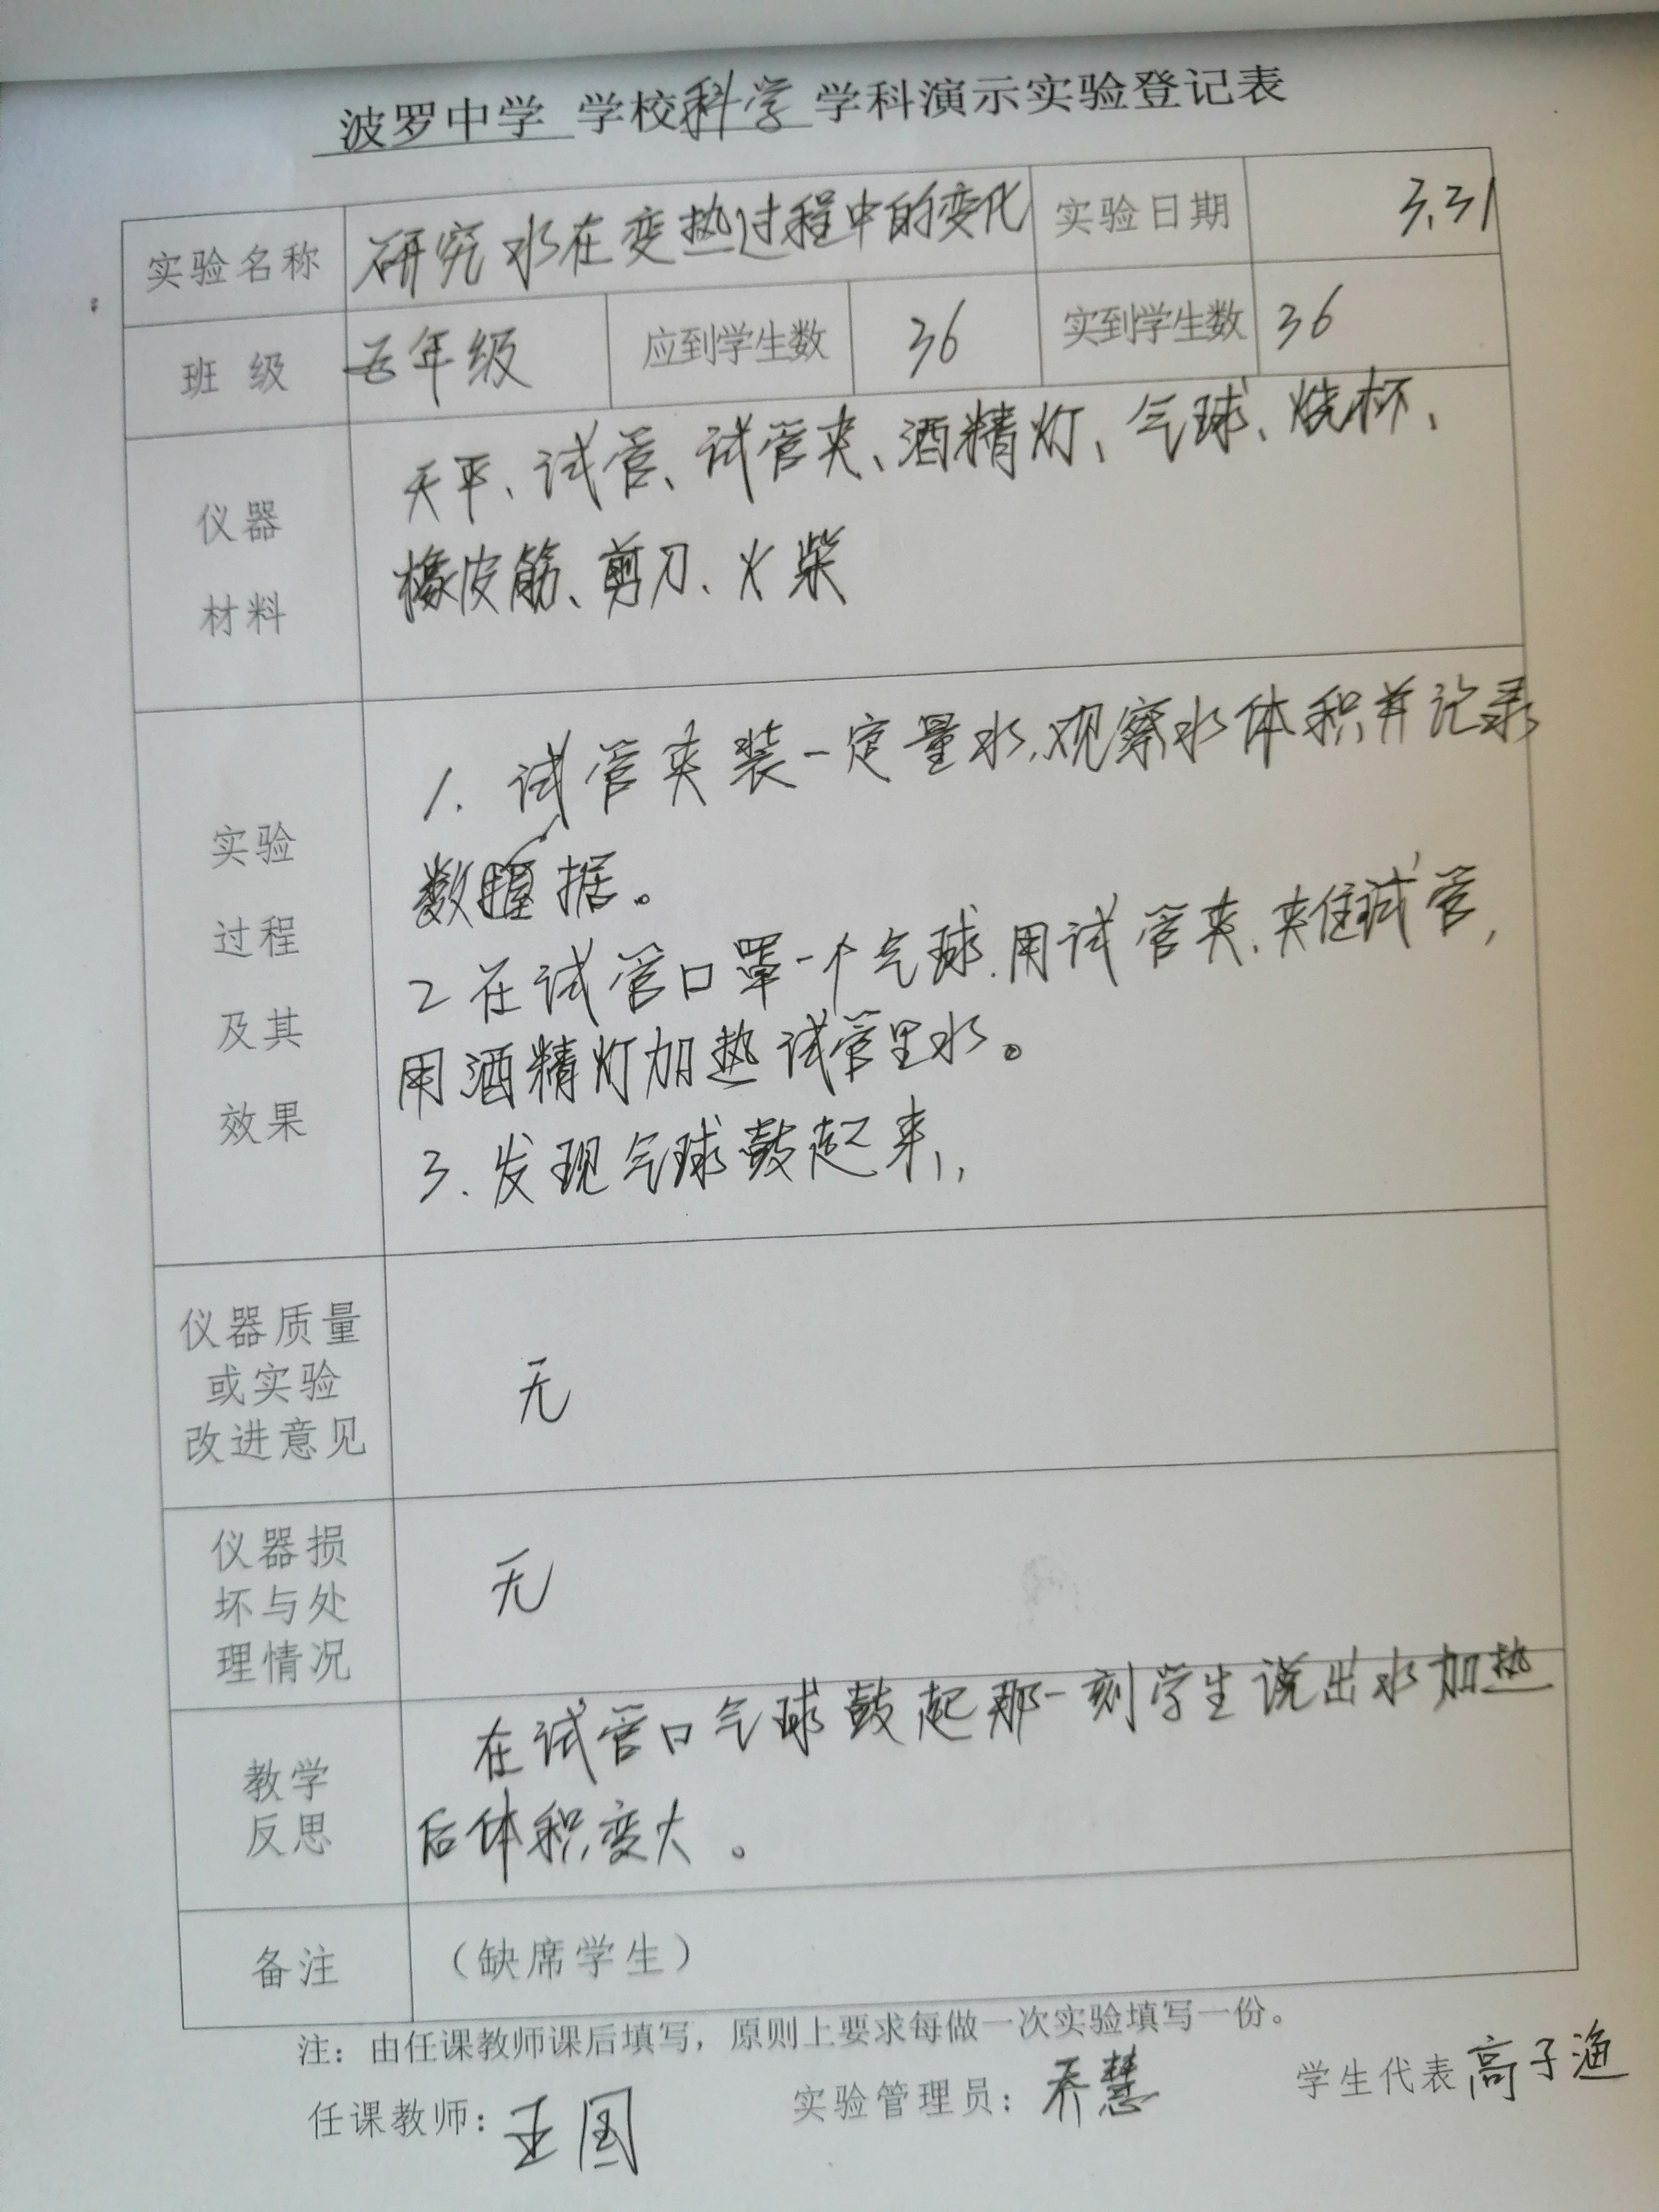 波罗中学 学校科学 学科演示实验登记表
实验名称 研究水在变热过程中的变化 实验日期 3.31
班 级 五年级 应到学生数 36 实到学生数 36
仪器
材料
天平、试管、试管夹、酒精灯、气球、烧杯、
橡皮筋、剪刀、火柴
实验
过程
及其
效果
1. 试管夹装一定量水,观察水体积并记录
数据。
2 在试管口罩一个气球.用试管夹.夹住试管,
用酒精灯加热试管里水。
3. 发现气球鼓起来,
仪器质量
或实验
改进意见
无
仪器损
坏与处
理情况
无
教学
反思
在试管口气球鼓起那一刻学生说出水加热
后体积变大。
备注 (缺席学生)
注:由任课教师课后填写,原则上要求每做一次实验填写一份。
任课教师:王国 实验管理员:乔慧 学生代表高子渔